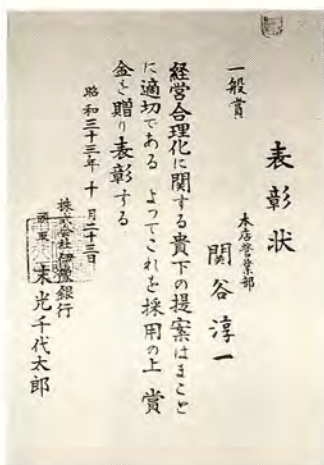 表彰状
一般賞
本店営業部
関谷淳一
経営合理化に関する貴下の提案はまこと
に適切である よってこれを採用の上 賞
金を贈り表彰する
昭和三十三年十月二十三日
株式会社伊豫銀行
頭取 末光千代太郎